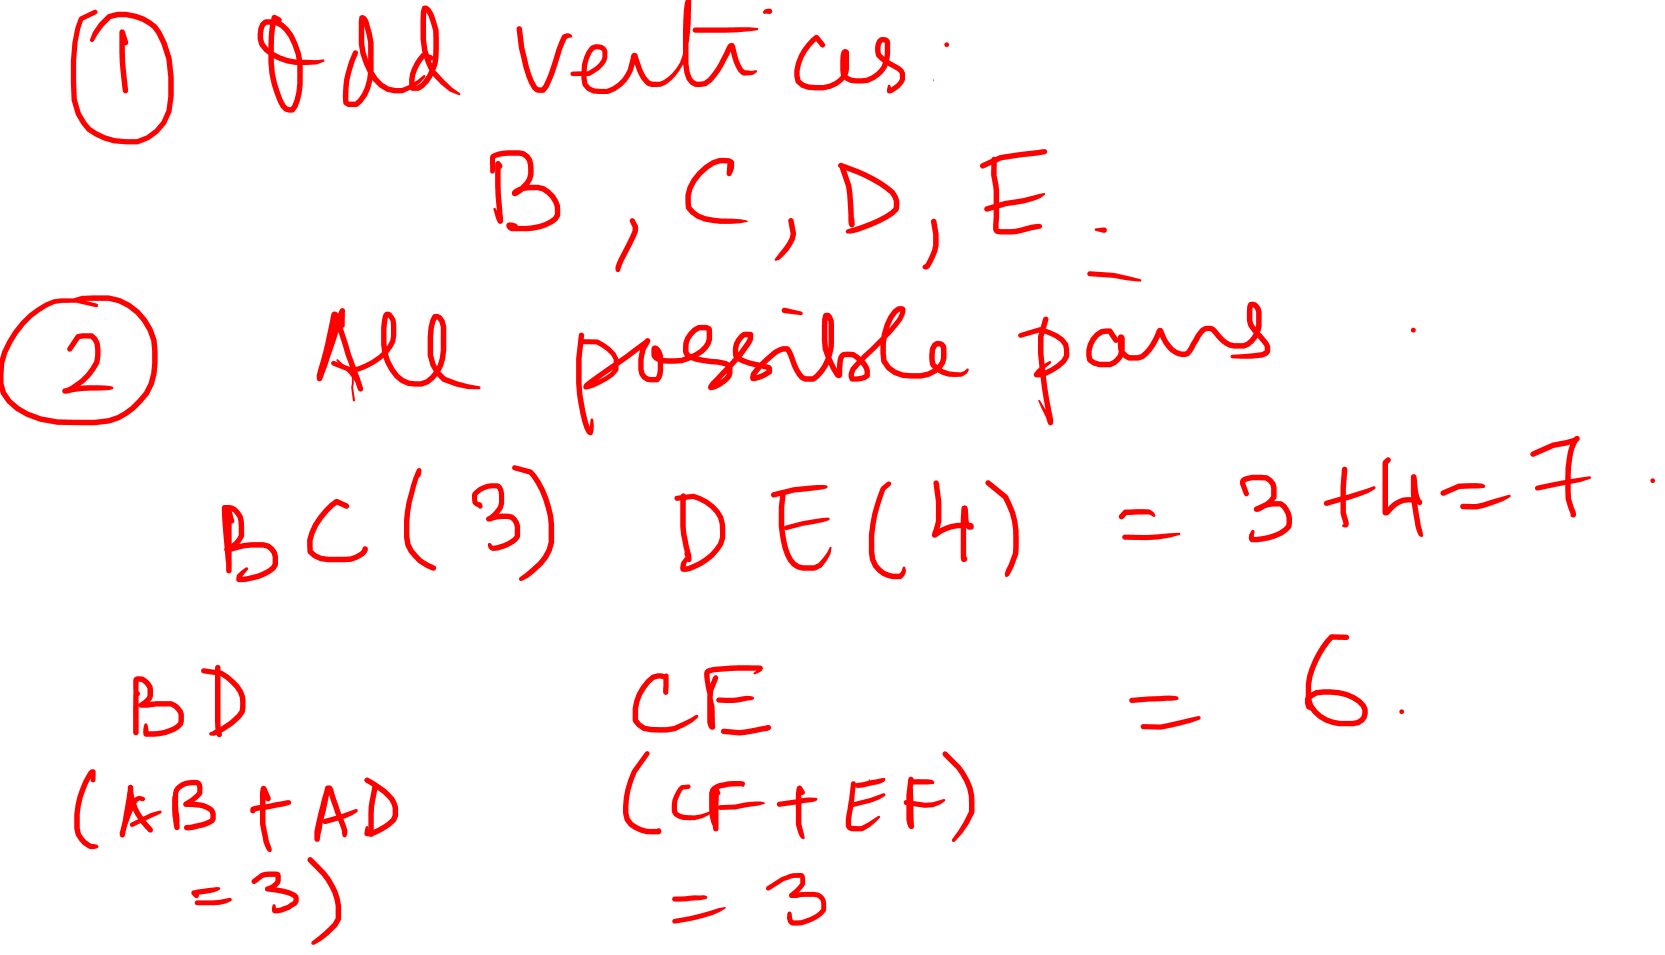 ① Odd vertices.
B, C, D, E.
② All possible pairs.
BC(3) DE(4) = 3+4=7.
BD CE = 6.
(AB+AD (CF+EF)
=3) =3